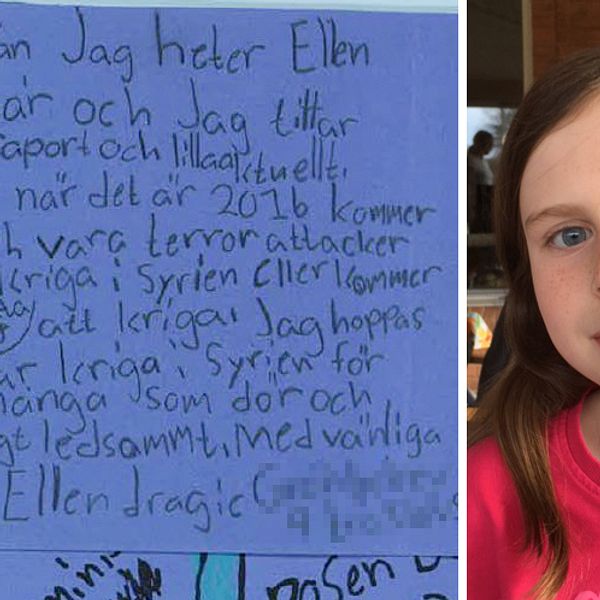 än Jag heter Ellen
år och Jag tittar
aport och lillaaktuellt.
når det är 2016 kommer
h vara terrorattacker
kriga i Syrien Eller kommer
att kriga. Jag hoppas
ar kriga i Syrien för
många som dör och
gt ledsammt. Med vänliga
Ellen dragic